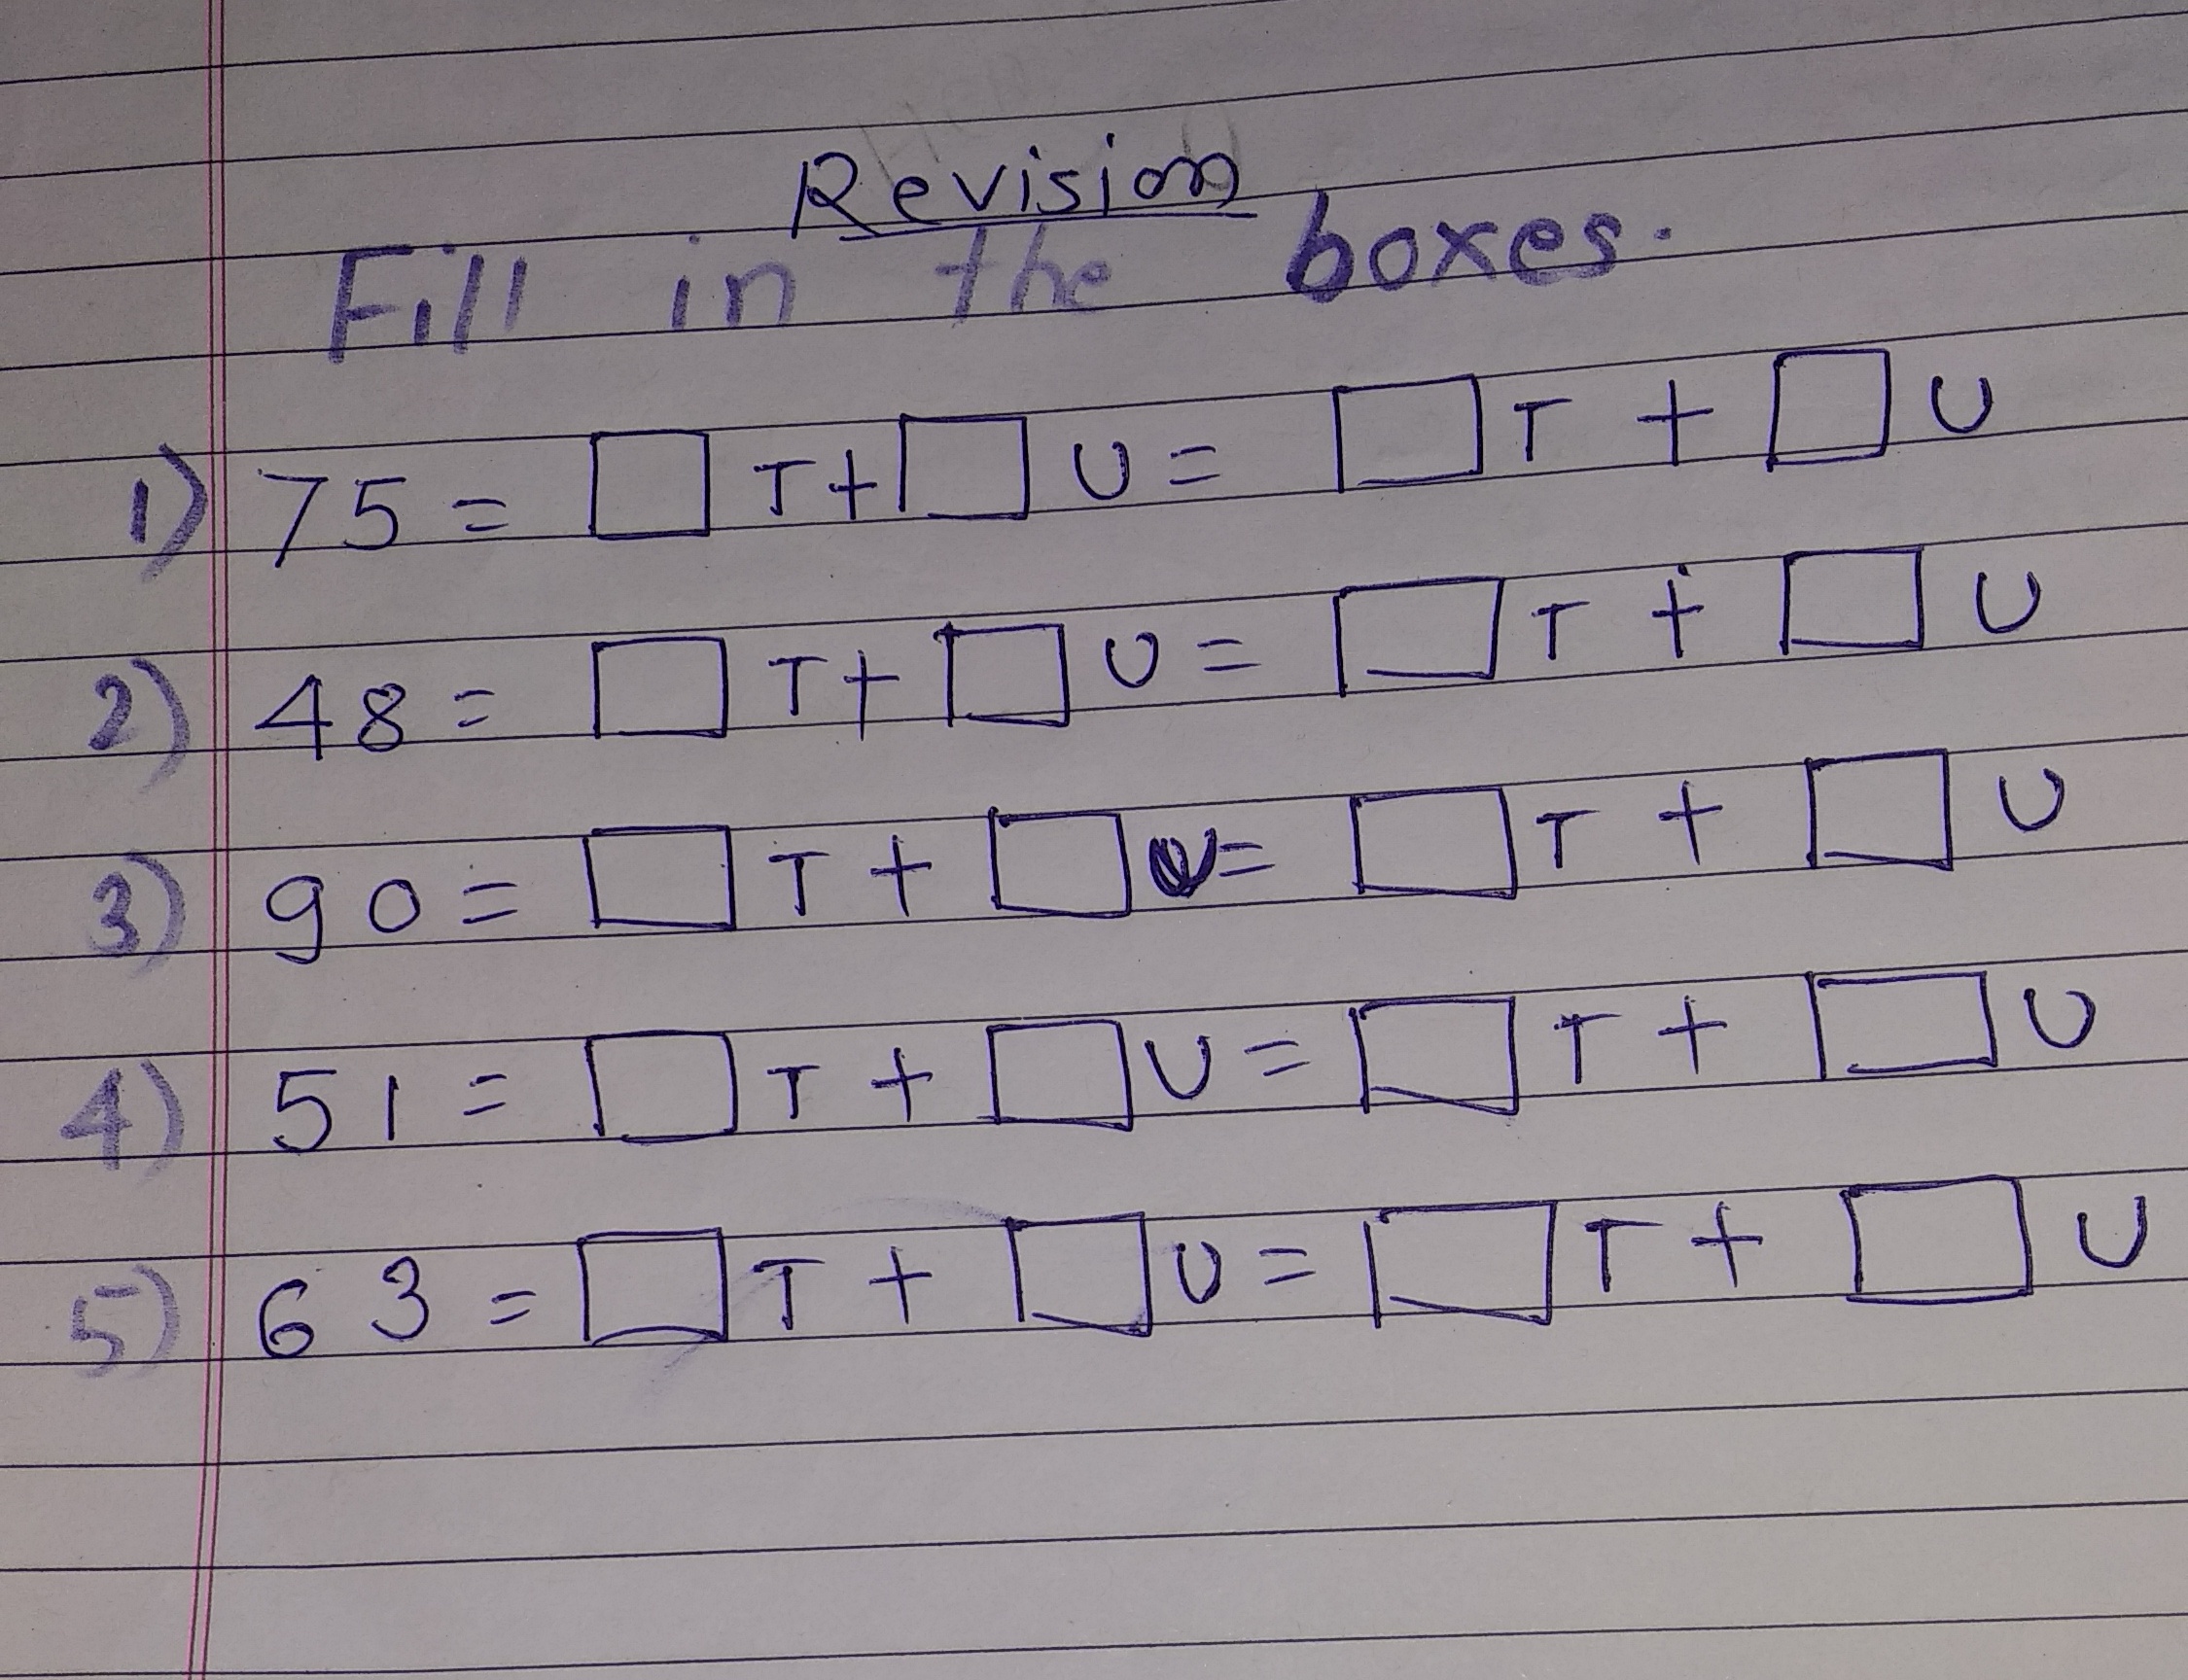 Revision
Fill in the boxes.
1) 75 = □ T + □ U = □ T + □ U
2) 48 = □ T + □ U = □ T + □ U
3) 90 = □ T + □ U = □ T + □ U
4) 51 = □ T + □ U = □ T + □ U
5) 63 = □ T + □ U = □ T + □ U